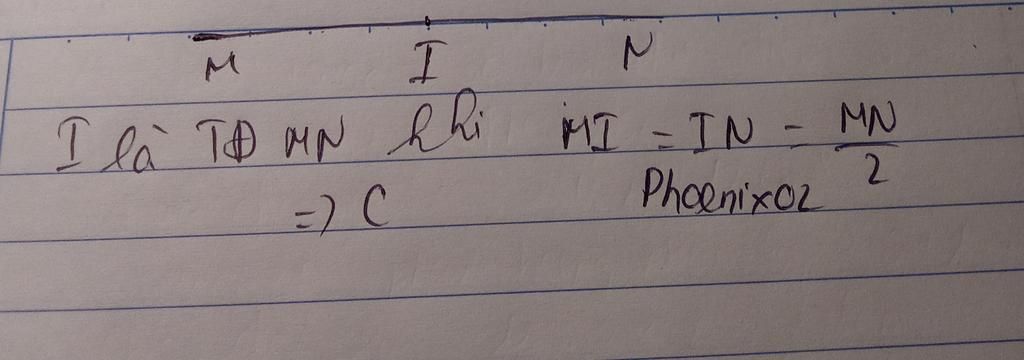 M I N
I là TĐ MN khi MI = IN = MN/2
=> C Phoenixoz